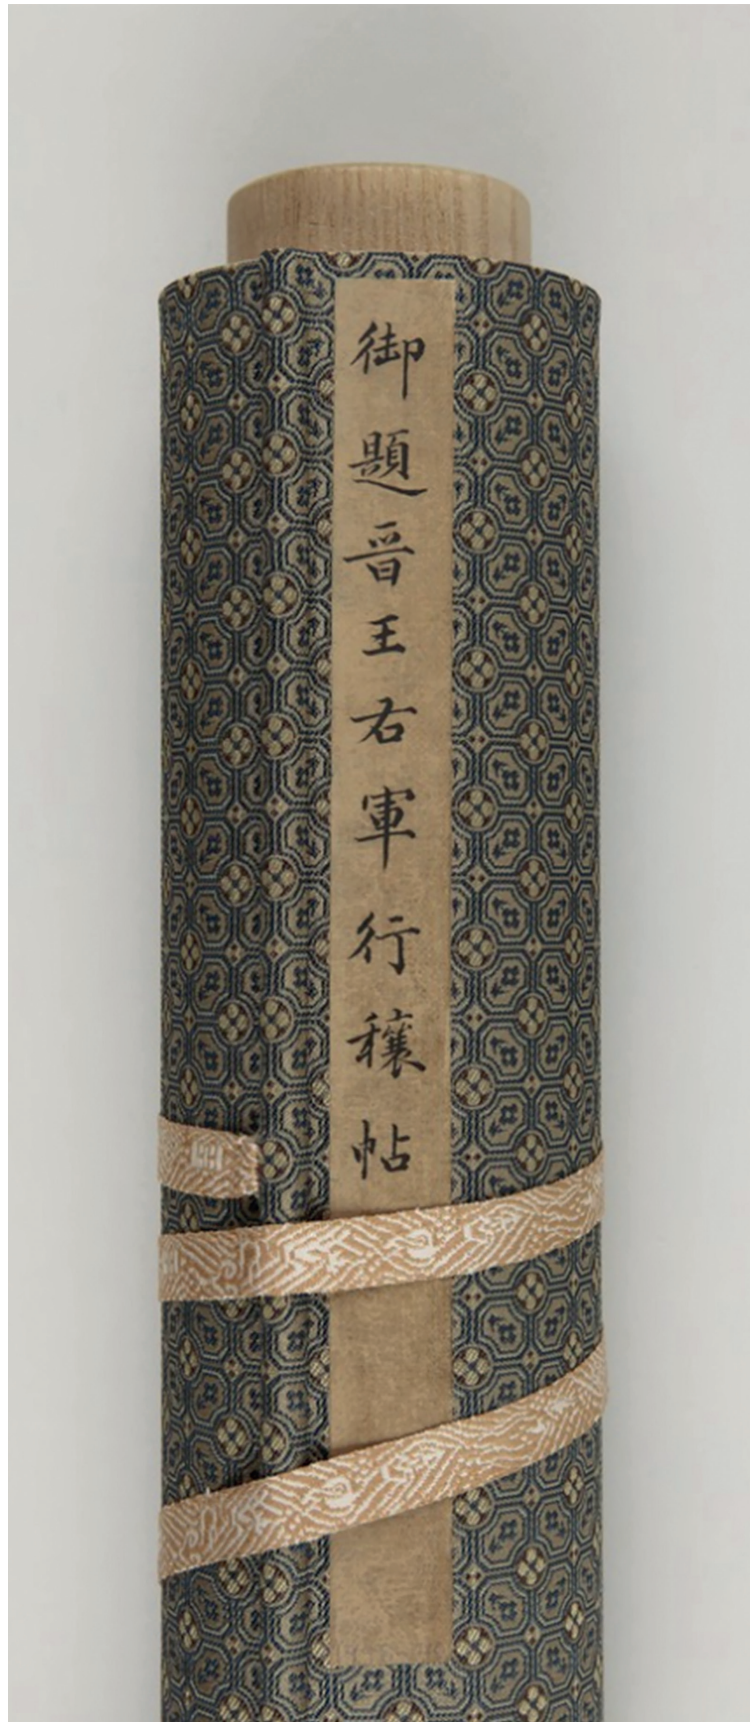 御題晋王右軍行穰帖